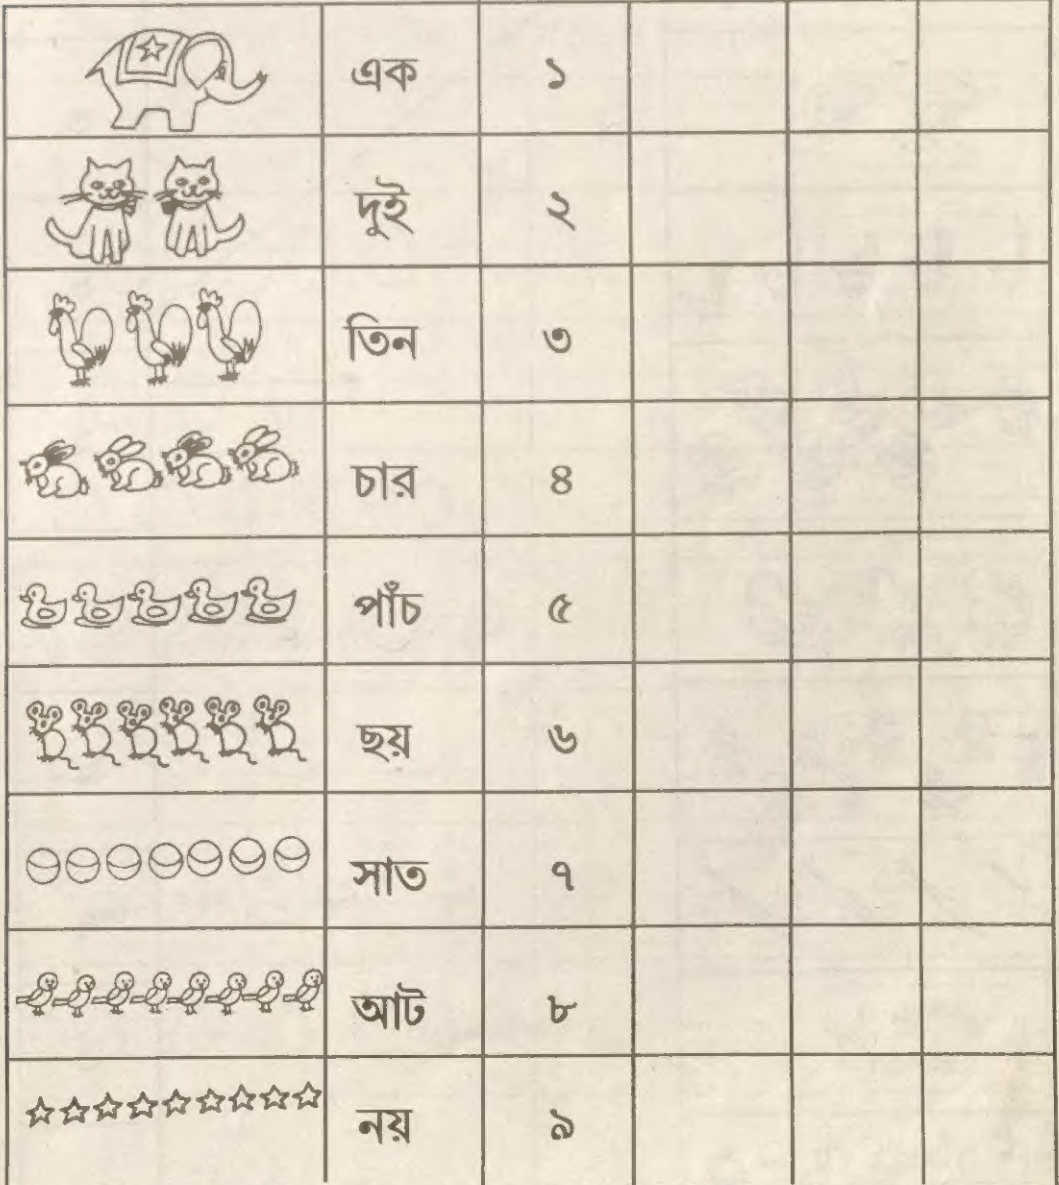 এক ১
দুই ২
তিন ৩
চার ৪
পাঁচ ৫
ছয় ৬
সাত ৭
আট ৮
নয় ৯